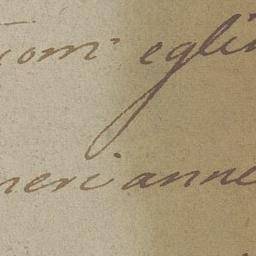 com' egli
neri anne